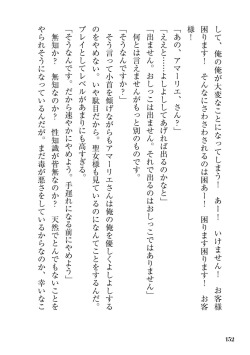 して、俺の俺が大変なことになってしまう！　あー！　いけません！　お客様
困ります！　そんなにさわさわされるのは困あー！　困ります困ります！　お客
様！
「あの、アマーリエ、さん？」
「ええと……よしよししてあげれば出るのかなと」
「出ません。おしっこは出ません。それで出るのはおしっこではありません」
　何とは言えませんがもっと別のものです。
「そうなんですか？」
　そう言って小首を傾げながらもアマーリエさんは俺の俺を優しくよしよしする
のをやめない。いや駄目だから。聖女様も見ているのになんてことをするんだ。
プレイとしてレベルがあまりにも高すぎる。
「そうなんです。だから速やかにやめよう。手遅れになる前にやめよう」
　無知か？　無知なのか？　性知識が皆無なのか？　天然でとんでもないことを
やられそうになっているんだが。まだ毒が悪さをしているからなのか、幸いなこ
152